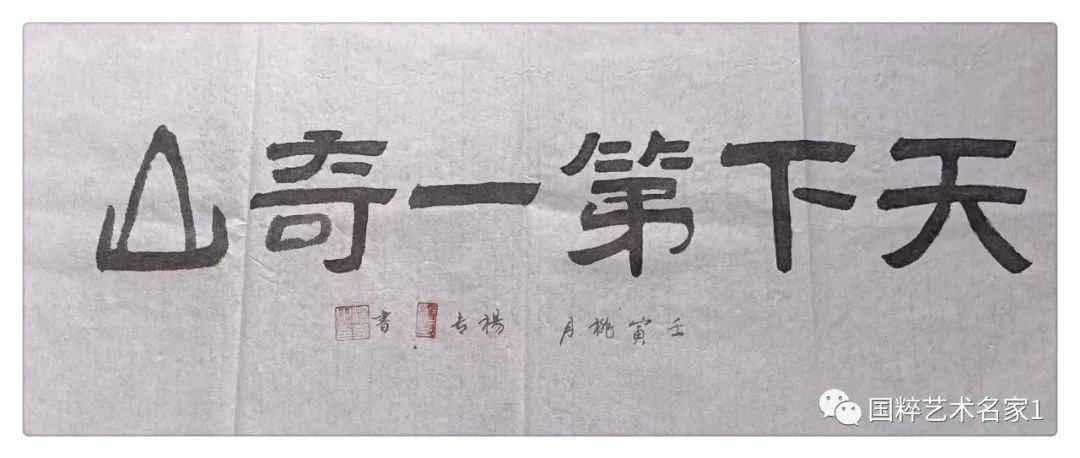 天下第一奇山
壬寅桃月 楊 书
国粹艺术名家1